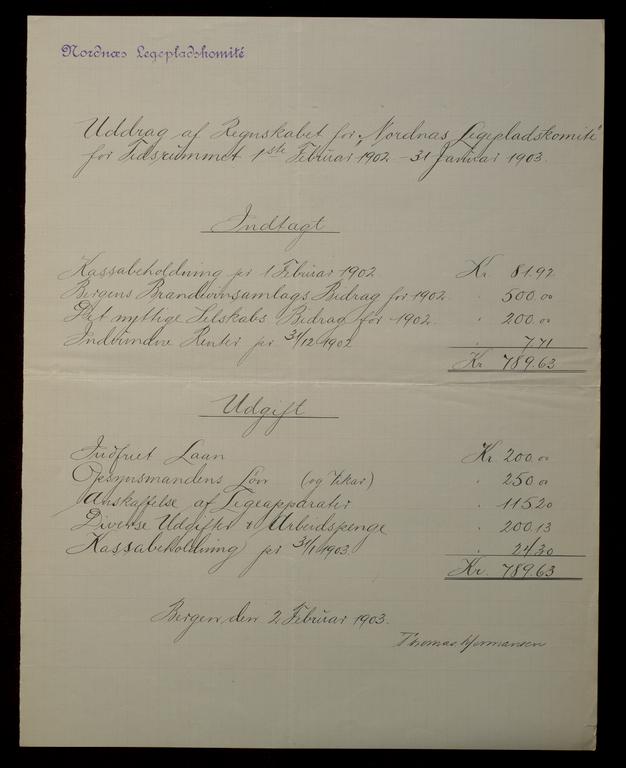 Nordnæs Legepladskomité
Uddrag af Regnskabet for „Nordnæs Legepladskomité"
for Tidsrummet 1ste Februar 1902 - 31 Januar 1903.
Indtægt
Kassabeholdning pr 1 Februar 1902 Kr. 81.92
Bergens Brændevinsamlags Bidrag for 1902 " 500.00
Det nyttige Selskabs Bidrag for 1902. " 200.00
Indvundne Renter pr 31/12 1902 " 7.71
Kr 789.63
Udgift
Indfriet Laan Kr. 200.00
Opsynsmandens Løn (og Vikar) " 250.00
Anskaffelse af Legeapparater " 115.20
Diverse Udgifter & Arbeidspenge " 200.13
Kassabeholdning pr 31/1 1903. " 24.30
Kr. 789.63
Bergen den 2 Februar 1903.
Thomas Hermansen